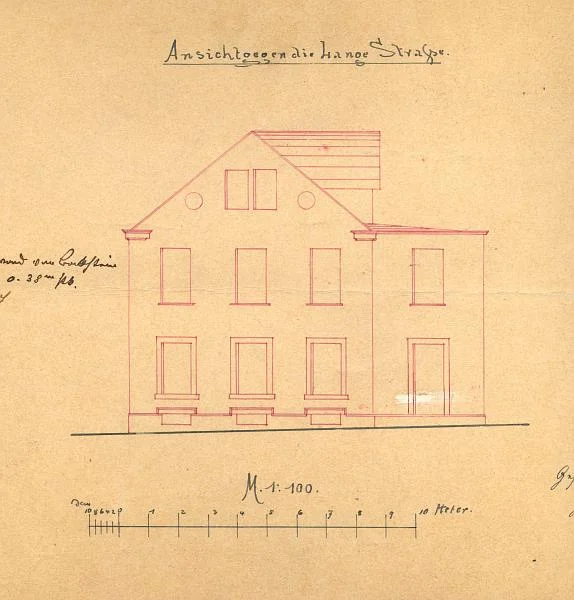 Ansicht gegen die Lange Straße.
von Backstein
0.38 m
M. 1:100.
10 8 6 4 2 0 1 2 3 4 5 6 7 8 9 10 Meter.